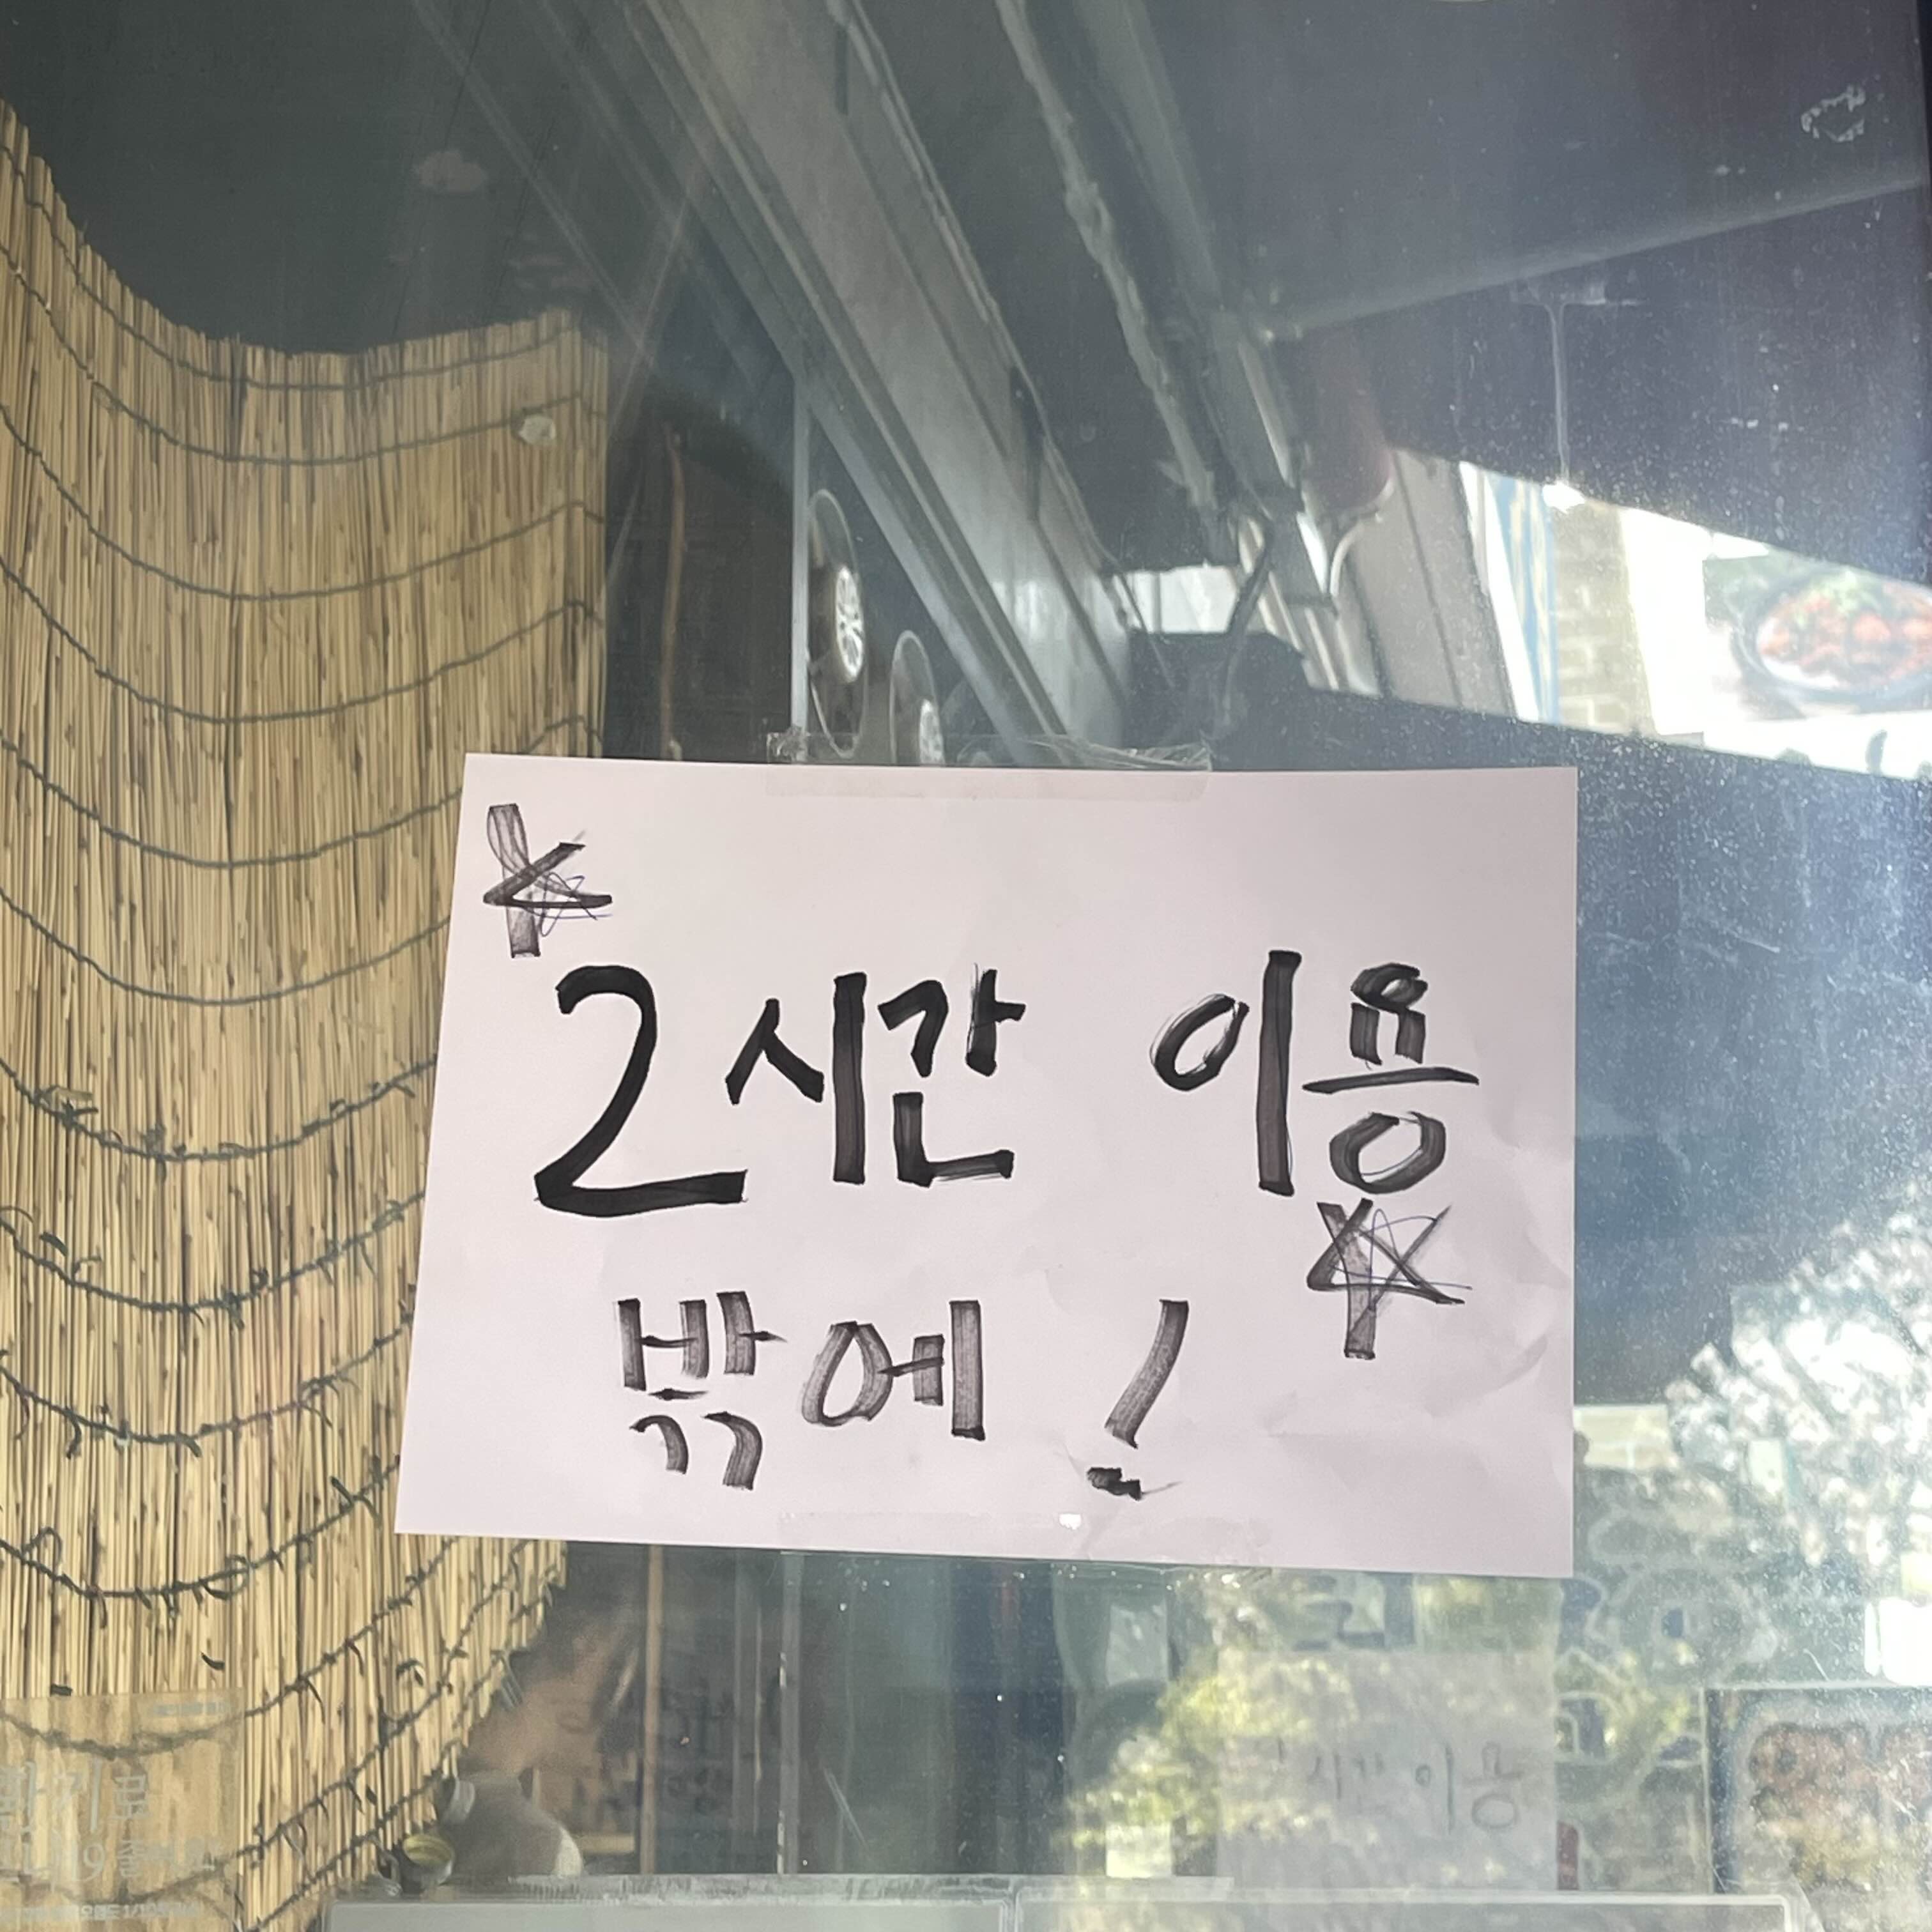 2시간 이용
밖에!
시간 이용